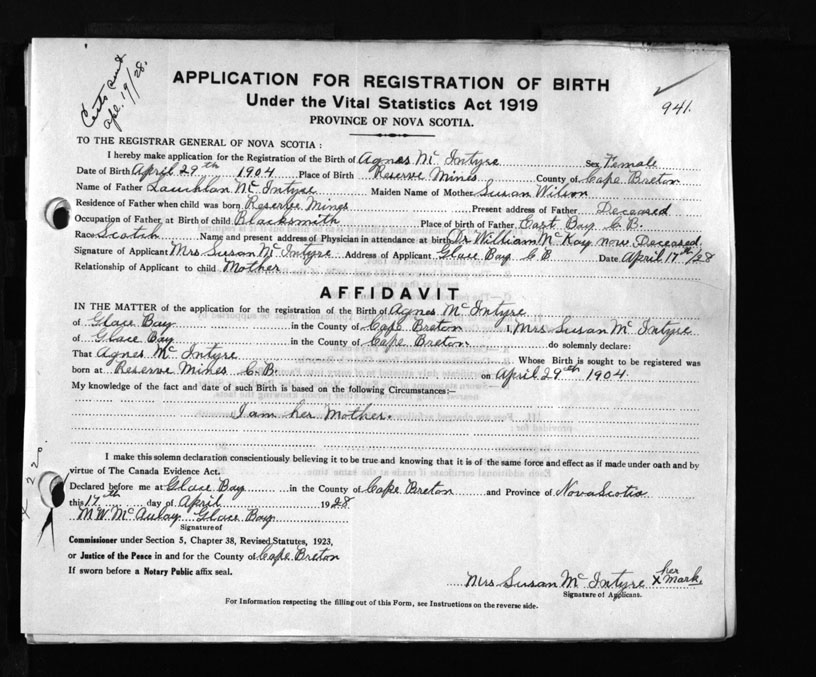 Certs sent
Apl. 19/28.
941.
APPLICATION FOR REGISTRATION OF BIRTH
Under the Vital Statistics Act 1919
PROVINCE OF NOVA SCOTIA.
TO THE REGISTRAR GENERAL OF NOVA SCOTIA:
I hereby make application for the Registration of the Birth of Agnes McIntyre Sex Female
Date of Birth April 29th 1904 Place of Birth Reserve Mines County of Cape Breton
Name of Father Lauchlan McIntyre Maiden Name of Mother Susan Wilson
Residence of Father when child was born Reserve Mines Present address of Father Deceased
Occupation of Father, at Birth of child Blacksmith Place of birth of Father East Bay C.B.
Race Scotch Name and present address of Physician in attendance at birth Dr William McKay now Deceased
Signature of Applicant Mrs Susan McIntyre Address of Applicant Glace Bay C B Date April 17th/28
Relationship of Applicant to child Mother
AFFIDAVIT
IN THE MATTER of the application for the registration of the Birth of Agnes McIntyre
of Glace Bay in the County of Cape Breton I, Mrs Susan McIntyre
of Glace Bay in the County of Cape Breton do solemnly declare:
That Agnes McIntyre Whose Birth is sought to be registered was
born at Reserve Mines C.B. on April 29th 1904
My knowledge of the fact and date of such Birth is based on the following Circumstances:—
I am her Mother.
I make this solemn declaration conscientiously believing it to be true and knowing that it is of the same force and effect as if made under oath and by
virtue of The Canada Evidence Act.
Declared before me at Glace Bay in the County of Cape Breton and Province of Nova Scotia
this 17th day of April 1928
M.W. McAulay Glace Bay
Signature of
Commissioner under Section 5, Chapter 38, Revised Statutes, 1923,
or Justice of the Peace in and for the County of Cape Breton
If sworn before a Notary Public affix seal.
Mrs Susan McIntyre her X mark
Signature of Applicant.
For Information respecting the filling out of this Form, see Instructions on the reverse side.